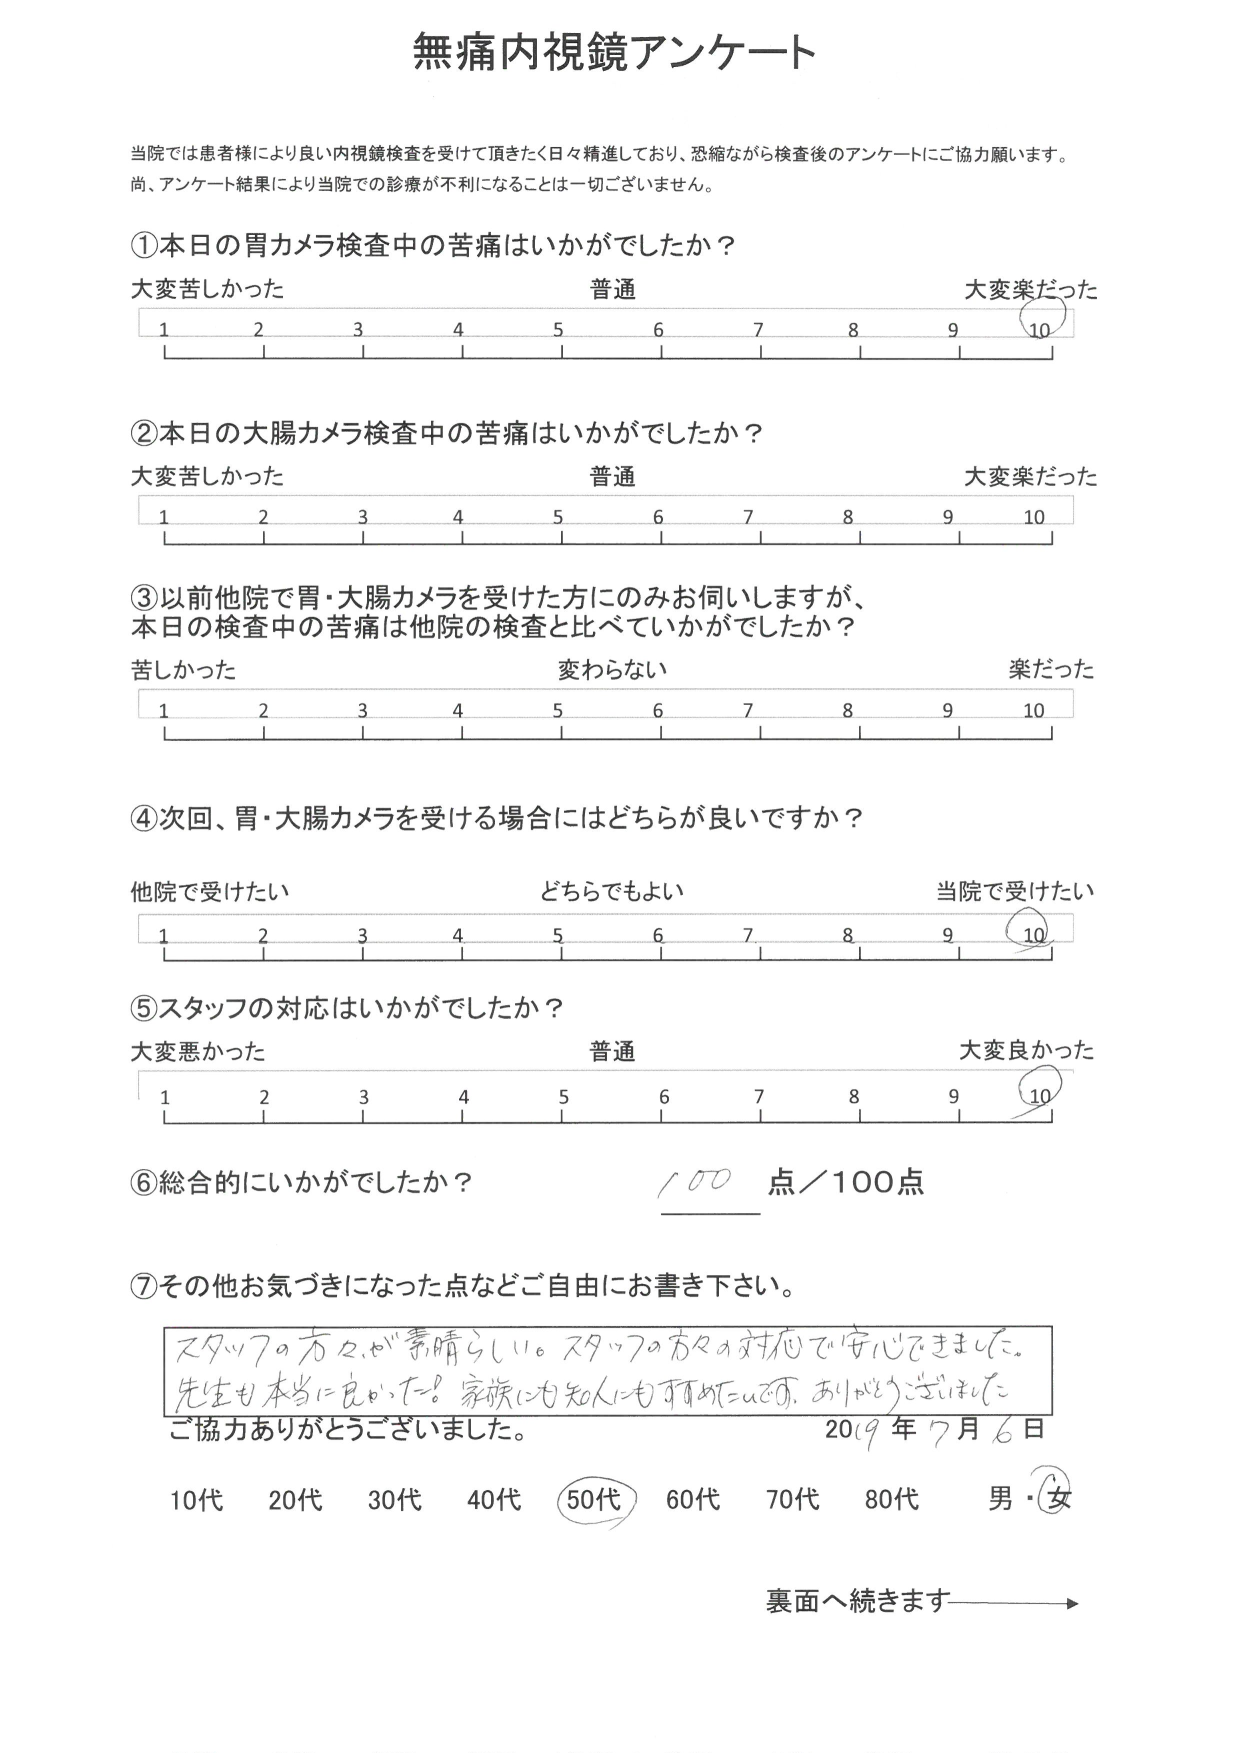 無痛内視鏡アンケート
当院では患者様により良い内視鏡検査を受けて頂きたく日々精進しており、恐縮ながら検査後のアンケートにご協力願います。
尚、アンケート結果により当院での診療が不利になることは一切ございません。
①本日の胃カメラ検査中の苦痛はいかがでしたか？
大変苦しかった 普通 大変楽だった
1 2 3 4 5 6 7 8 9 10
②本日の大腸カメラ検査中の苦痛はいかがでしたか？
大変苦しかった 普通 大変楽だった
1 2 3 4 5 6 7 8 9 10
③以前他院で胃・大腸カメラを受けた方にのみお伺いしますが、
本日の検査中の苦痛は他院の検査と比べていかがでしたか？
苦しかった 変わらない 楽だった
1 2 3 4 5 6 7 8 9 10
④次回、胃・大腸カメラを受ける場合にはどちらが良いですか？
他院で受けたい どちらでもよい 当院で受けたい
1 2 3 4 5 6 7 8 9 10
⑤スタッフの対応はいかがでしたか？
大変悪かった 普通 大変良かった
1 2 3 4 5 6 7 8 9 10
⑥総合的にいかがでしたか？ 100 点／100点
⑦その他お気づきになった点などご自由にお書き下さい。
スタッフの方々が素晴らしい。スタッフの方々の対応で安心できました。
先生も本当に良かった！家族にも知人にもすすめたいです。ありがとうございました
ご協力ありがとうございました。 2019年7月6日
10代 20代 30代 40代 50代 60代 70代 80代 男・女
裏面へ続きます